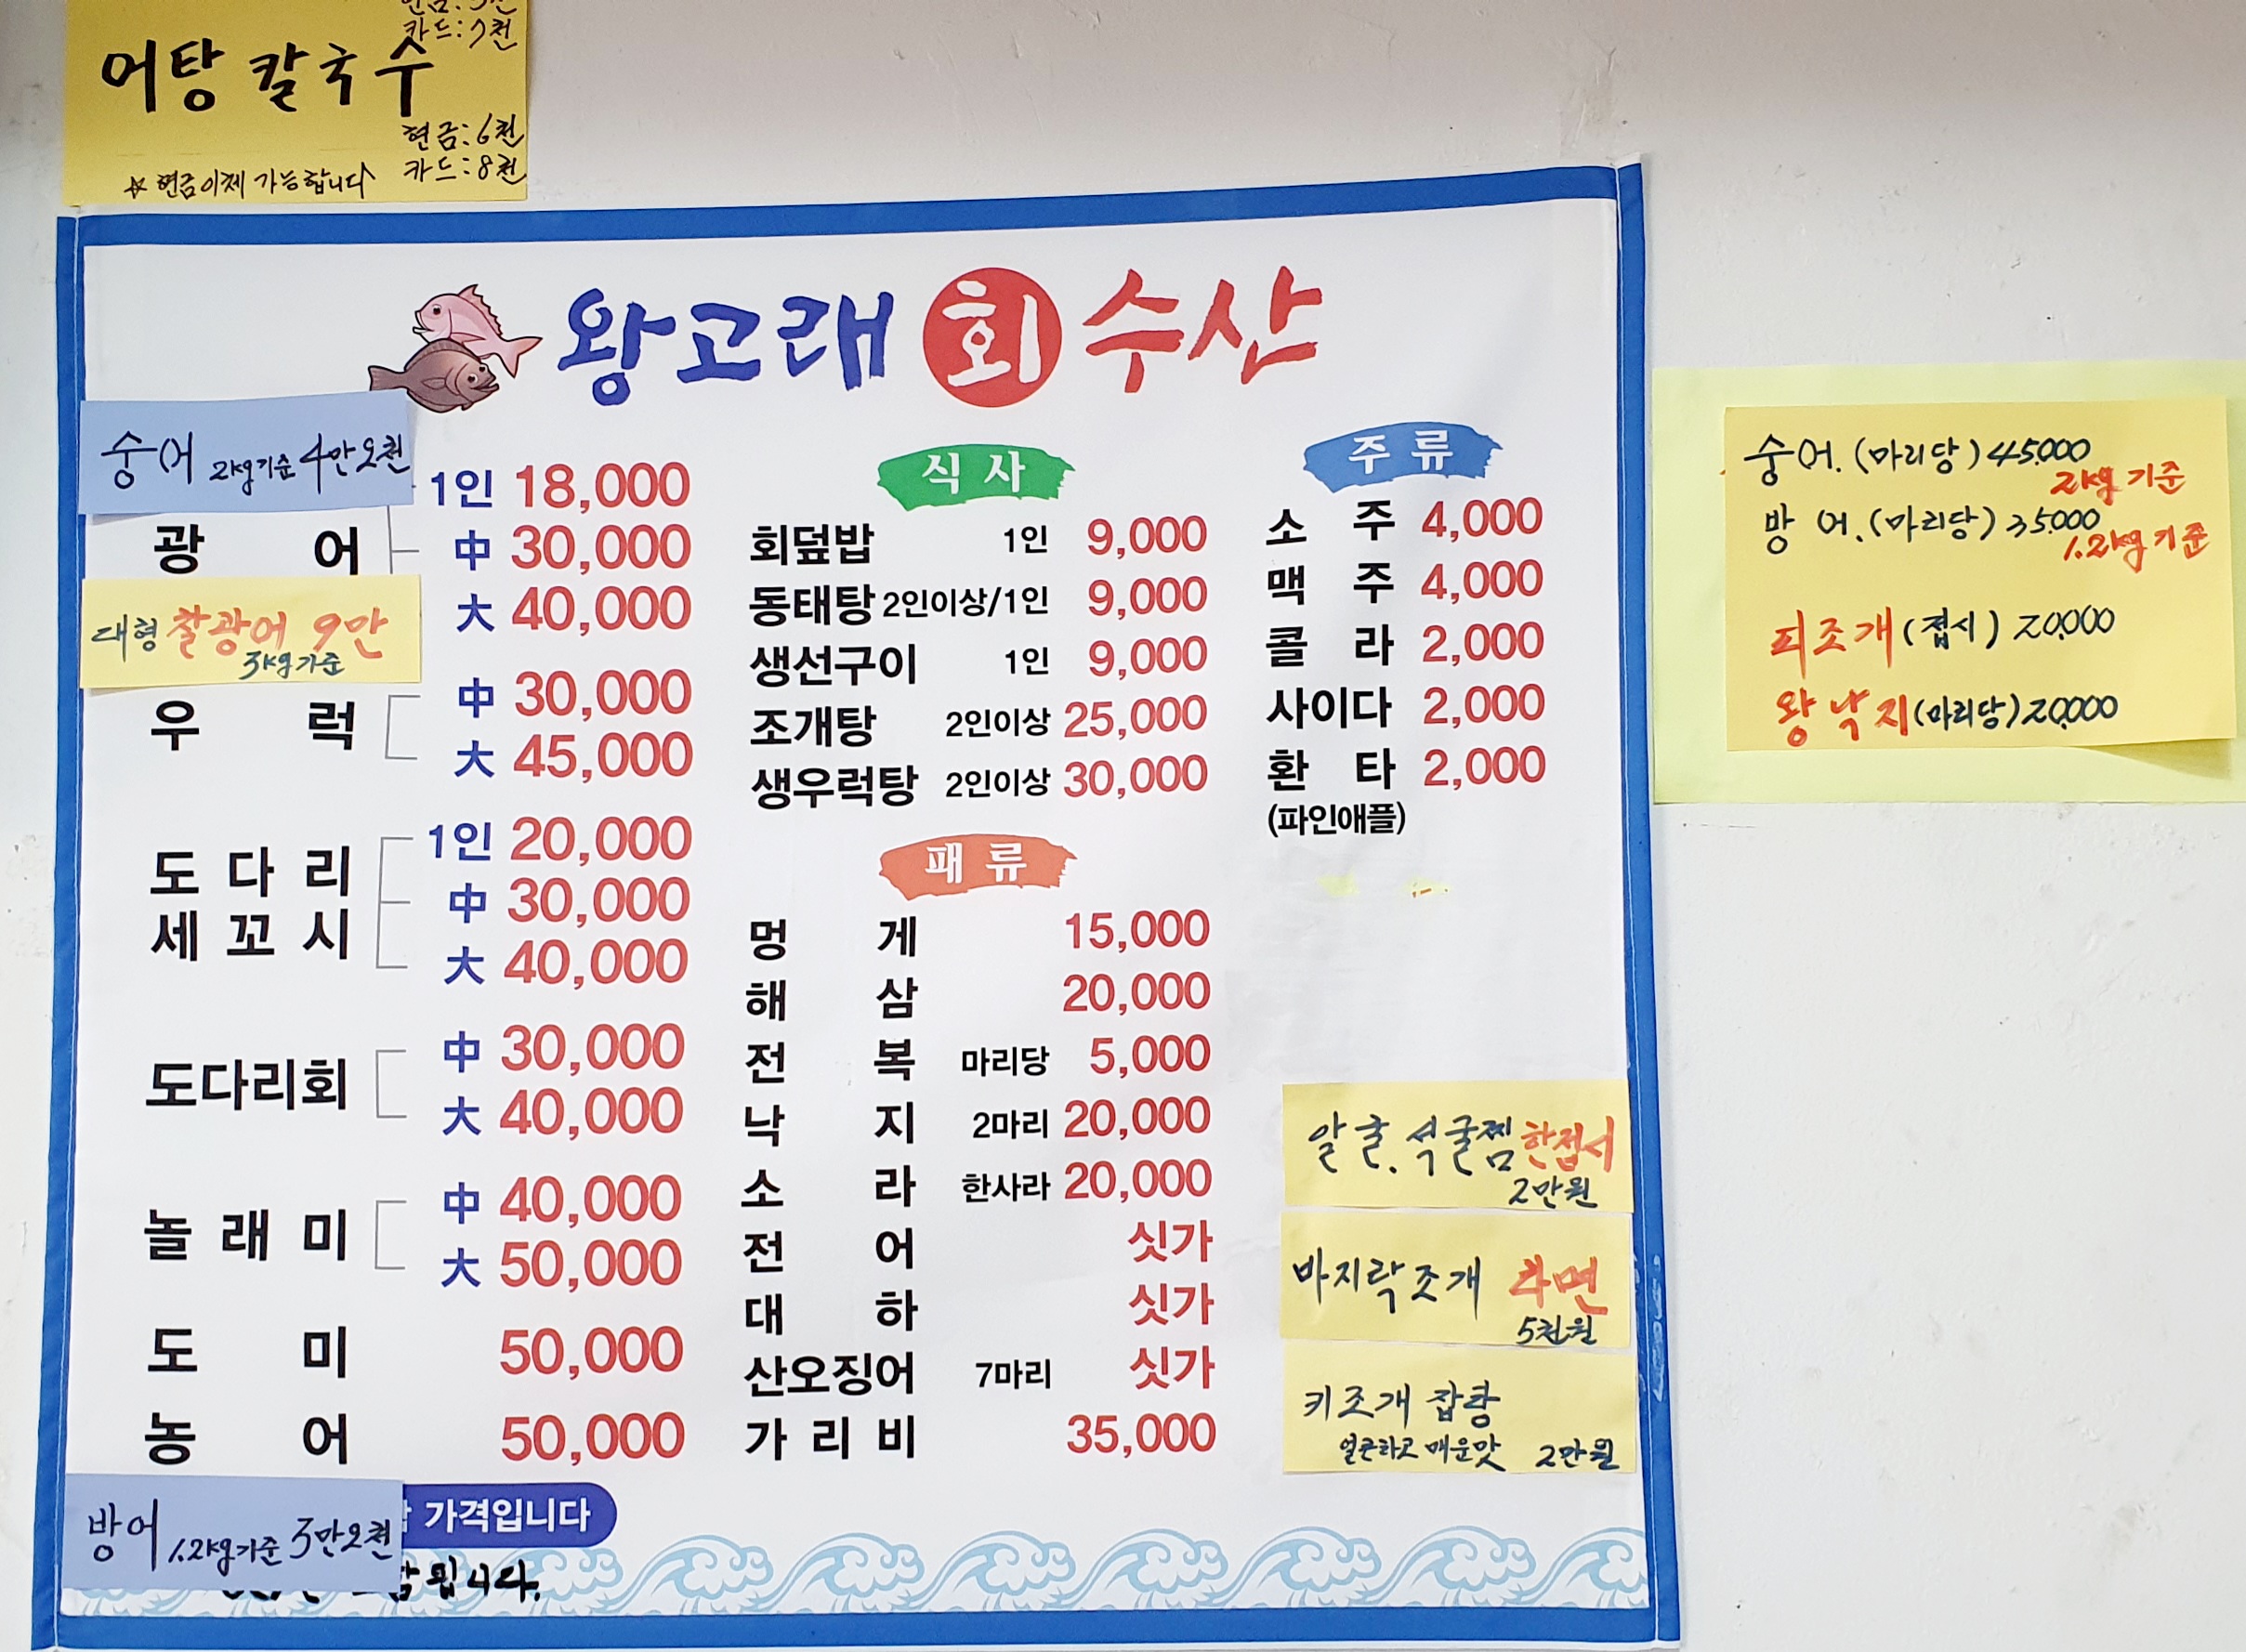 카드:7천
어탕 칼국수
현금:6천
카드:8천
☆ 현금이체 가능합니다
왕고래 회 수산
숭어 2kg기준 4만오천
광어
1인 18,000
中 30,000
大 40,000
대형 찰광어 9만
3kg기준
우럭
中 30,000
大 45,000
도다리
세꼬시
1인 20,000
中 30,000
大 40,000
도다리회
中 30,000
大 40,000
놀래미
中 40,000
大 50,000
도미 50,000
농어 50,000
방어 1.2kg기준 3만오천
가격입니다
됩니다.
식사
회덮밥 1인 9,000
동태탕 2인이상/1인 9,000
생선구이 1인 9,000
조개탕 2인이상 25,000
생우럭탕 2인이상 30,000
패류
멍게 15,000
해삼 20,000
전복 마리당 5,000
낙지 2마리 20,000
소라 한사라 20,000
전어 싯가
대하 싯가
산오징어 7마리 싯가
가리비 35,000
주류
소주 4,000
맥주 4,000
콜라 2,000
사이다 2,000
환타 2,000
(파인애플)
알굴. 석굴찜 한접시
2만원
바지락조개 라면
5천원
키조개 잡탕
얼큰하고 매운맛 2만원
숭어.(마리당) 45,000
2kg 기준
방어.(마리당) 35,000
1.2kg 기준
피조개(접시) 20,000
왕낙지(마리당) 20,000